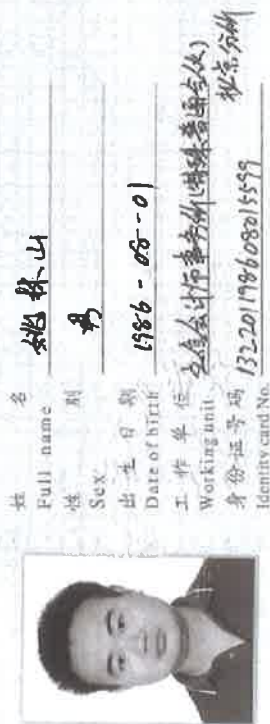 姓 名 姚林山
Full name
性 别 男
Sex
出 生 日 期 1986-08-01
Date of birth
工 作 单 位 会计师事务所(特殊普通合伙)
Working unit 北京分所
身份证号码 132201198608015599
Identity card No.